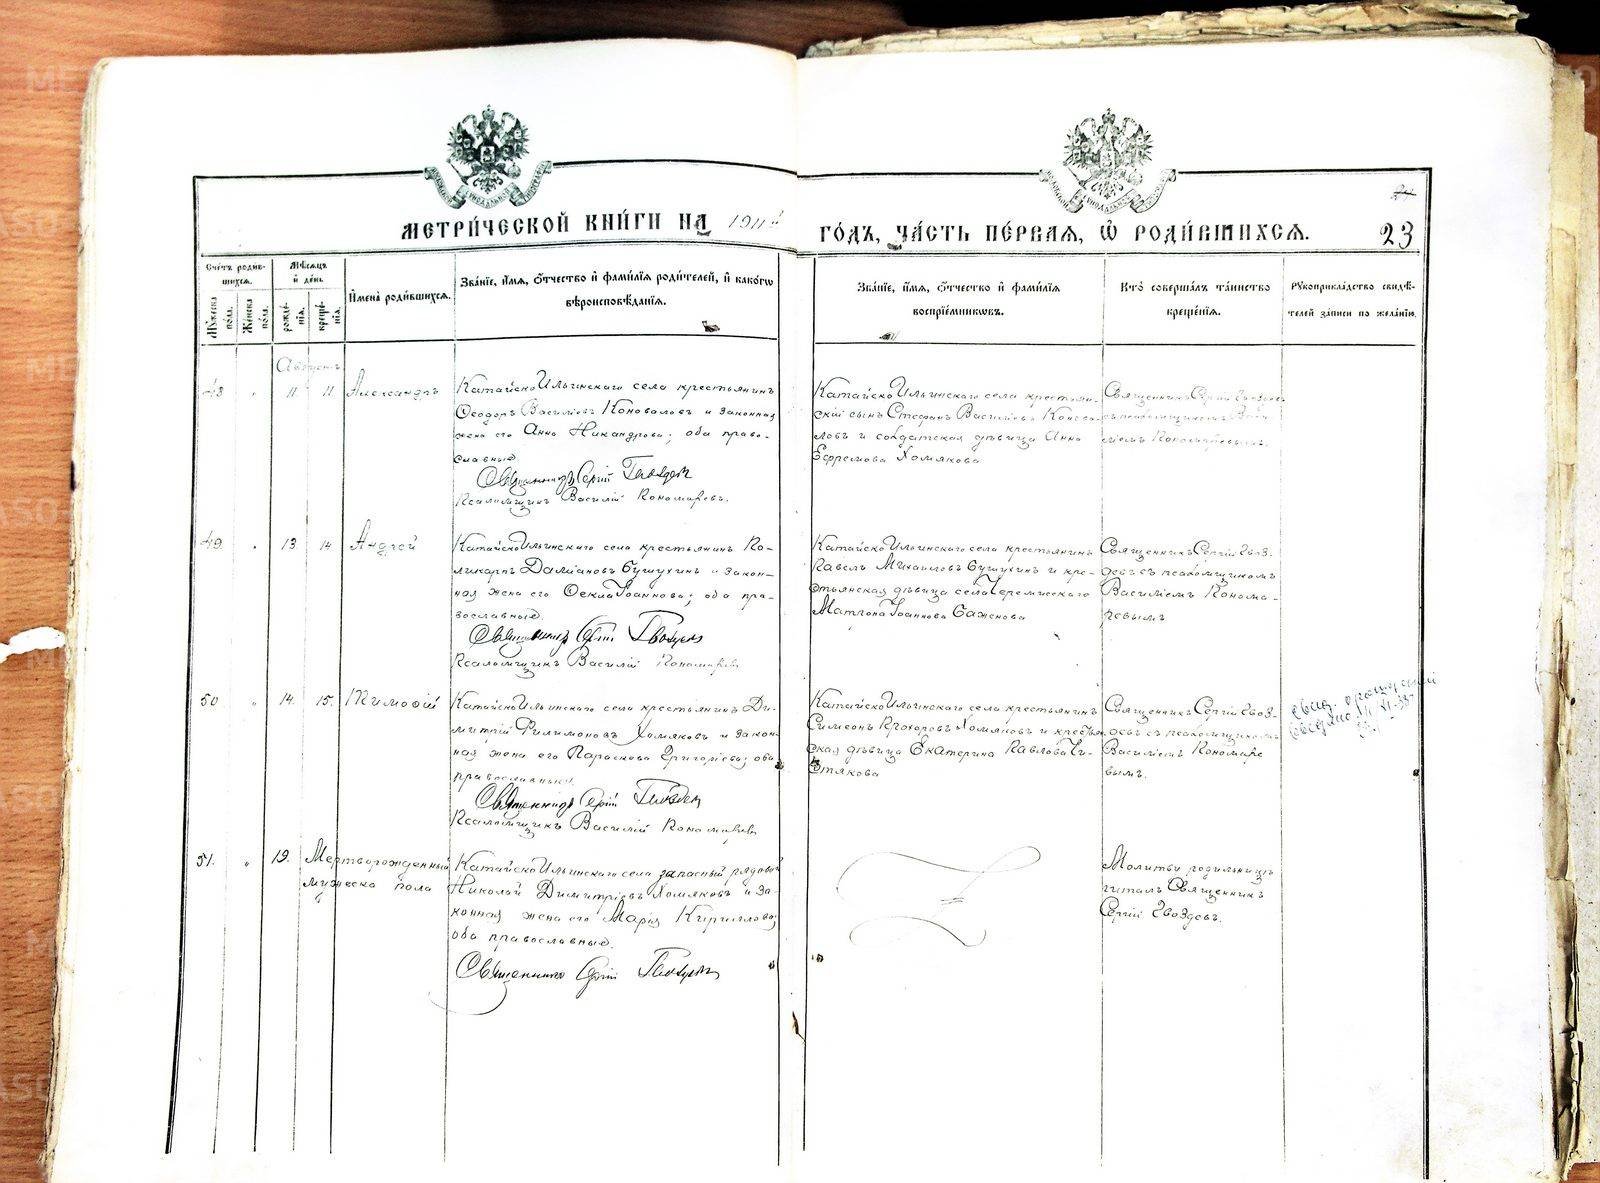 МЕТРИ́ЧЕСКОЙ КНИ́ГИ НА 1911й
ГО́ДЪ, ЧА́СТЬ ПЕ́РВАЯ, Ѽ РОДИ́ВШИХСЯ.
23
Сче́тъ роди́в-
шихся.
Му́жеска по́ла.
Же́нска по́ла.
Мѣ́сяцъ
и҆ де́нь.
рожде́-
нїя.
креще́-
нїя.
И҆мена̀ роди́вшихся.
Зва́нїе, и҆́мя, ѻ҆́тчество и҆ фами́лїя роди́телей, и҆ како́гѡ
вѣроисповѣ́данїя.
Зва́нїе, и҆́мя, ѻ҆́тчество и҆ фами́лїя
воспрїе́мниковъ.
Кто̀ соверша́лъ та́инство
креще́нїя.
Рꙋкоприкла́дство свидѣ́-
телей за́писи по жела́нїю.
Августъ
48 " 11 11 Александръ
КатайскоИльинскаго села крестьянинъ
Ѳеодоръ Василіевъ Коноваловъ и законная
жена его Анна Никандрова; оба право-
славные.
Священникъ Сергій Гвоздевъ
Псаломщикъ Василій Пономаревъ.
КатайскоИльинскаго села крестьян-
скій сынъ Стефанъ Василіевъ Конова-
ловъ и солдатская дѣвица Анна
Ефремова Хомякова
Священникъ Сергій Гвоздевъ
съ псаломщикомъ Васи-
ліемъ Пономаревымъ.
49. " 13 14 Андрей
КатайскоИльинскаго села крестьянинъ По-
ликарпъ Даміановъ Бушухинъ и закон-
ная жена его Ѳекла Іоаннова; оба пра-
вославные.
Священникъ Сергій Гвоздевъ
Псаломщикъ Василій Пономаревъ
КатайскоИльинскаго села крестьянинъ
Павелъ Михаиловъ Бушухинъ и кре-
стьянская дѣвица села Черемисскаго
Матрона Іоаннова Саженова
Священникъ Сергій Гвоз-
девъ съ псаломщикомъ
Василіемъ Понома-
ревымъ
50 " 14. 15. Тимоѳій
КатайскоИльинскаго села крестьянинъ Ди-
митрій Филимоновъ Хомяковъ и закон-
ная жена его Параскева Григоріева; оба
православные.
Священникъ Сергій Гвоздевъ
Псаломщикъ Василій Пономаревъ
КатайскоИльинскаго села крестьянинъ
Симеонъ Прохоровъ Хомяковъ и крестьян-
ская дѣвица Екатерина Павлова Чи-
стякова
Священникъ Сергій Гвоз-
девъ съ псаломщикомъ
Василіемъ Пономаре-
вымъ.
51. " 19. Мертворожденный
мужеска пола
КатайскоИльинскаго села запасный рядовой
Николай Димитріевъ Хомяковъ и за-
конная жена его Марія Кириллова;
оба православные.
Священникъ Сергій Гвоздевъ
Молитву родильницѣ
читалъ Священникъ
Сергій Гвоздевъ.